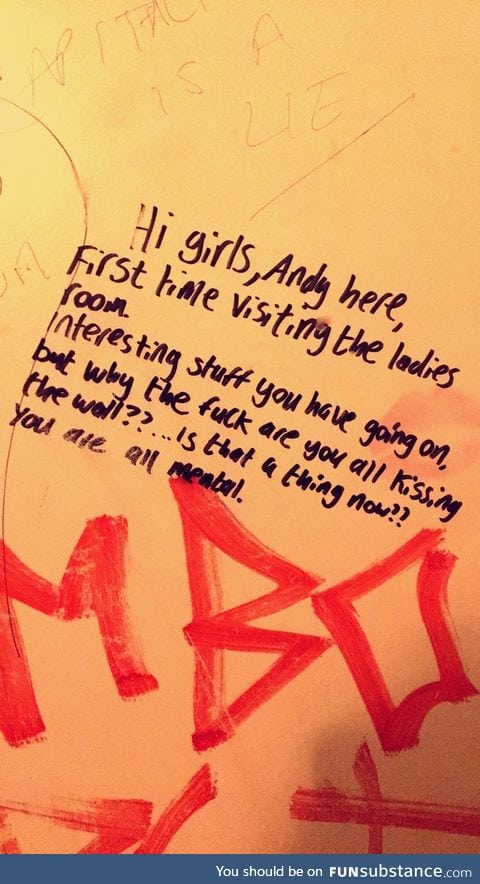 IS A
LIE
Hi girls, Andy here,
First time visiting the ladies
room.
Interesting stuff you have going on,
but why the fuck are you all kissing
the wall??...is that a thing now??
you are all mental.
MBO
You should be on FUNsubstance.com